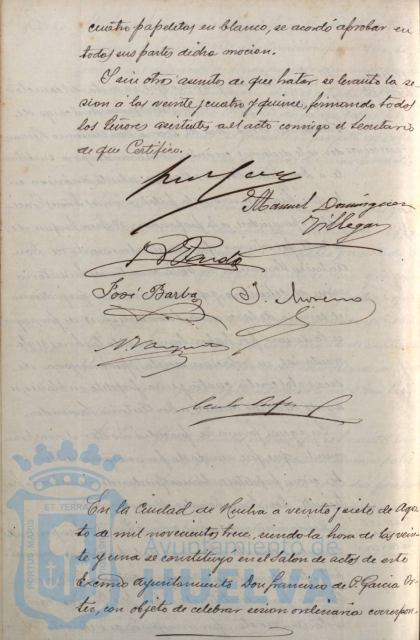 cuatro papeletas en blanco, se acordó aprobar en
todos sus partes dicha mocion.
Y sin otros asuntos de que tratar se levantó la se-
sion á las veinte y cuatro y quince, firmando todos
los Señores asistentes al acto conmigo el Secretario
de que Certifico.
Manuel Dominguez
Villegas
Pardo
José Barba J. Moreno
En la Ciudad de Huelva á veinte y siete de Agos-
to de mil novecientos trece, siendo la hora de las vein-
te y una se constituyó en el Salon de actos de este
Excmo Ayuntamiento Don Francisco de P. Garcia Or-
tiz, con objeto de celebrar sesion ordinaria correspon-
PORTUS MARIS ET TERRAE
Ayuntamiento de
HUELVA